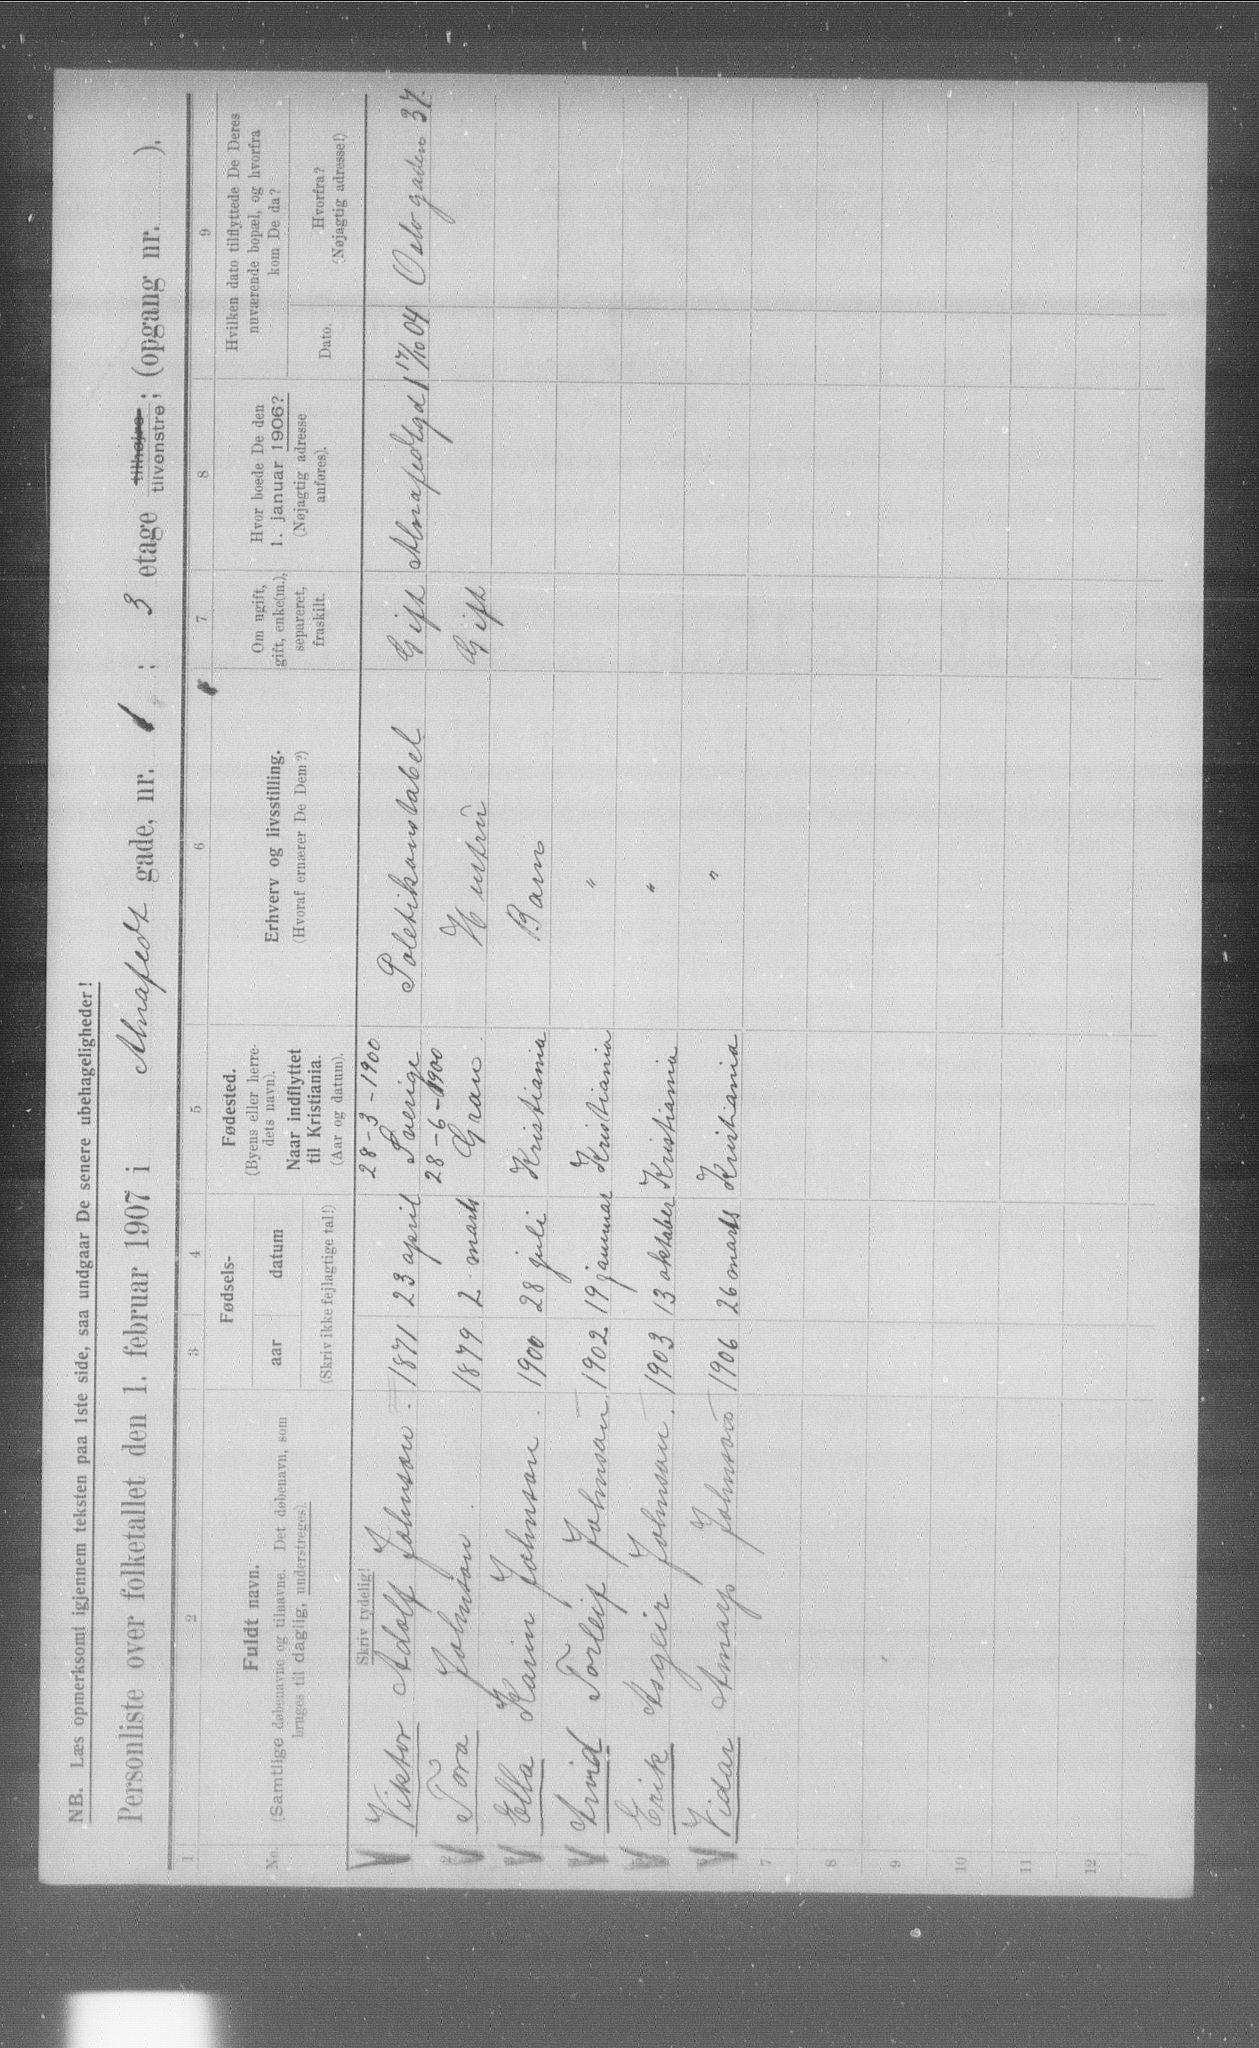 NB. Læs opmerksomt igjennem teksten paa 1ste side, saa undgaar De senere ubehageligheder!
Personliste over folketallet den 1. februar 1907 i Alnafedt gade, nr. 1 ; 3 etage tilhøjre tilvenstre ; (opgang nr. ).
1 2 3 4 5 6 7 8 9
No. Fuldt navn. (Samtlige døbenavne og tilnavne. Det døbenavn, som bruges til daglig, understreges).
Fødsels- aar datum (Skriv ikke fejlagtige tal!)
Fødested. (Byens eller herredets navn). Naar indflyttet til Kristiania. (Aar og datum).
Erhverv og livsstilling. (Hvoraf ernærer De Dem?)
Om ugift, gift, enke(m.), separeret, fraskilt.
Hvor boede De den 1. januar 1906? (Nøjagtig adresse anføres).
Hvilken dato tilflyttede De Deres nuværende bopæl, og hvorfra kom De da?
Dato. Hvorfra? (Nøjagtig adresse!)
Skriv tydelig!
28-3-1900
Viktor Adolf Johnson. 1871 23 april Sverige Poletikonstabel Gift Alnafedtgd 1 17/10 04 Oslo gaden 37.
28-6-1900
2 Tora Johnson. 1879 2. marts Gran. Hustru Gift
Ella Karin Johnson. 1900 28 juli Kristiania Barn
Arvid Torleif Johnson. 1902 19 januar Kristiania "
Erik Asgeir Johnson. 1903 13 oktober Kristiania "
Vidar Amarp Johnson 1906 26 marts Kristiania "
7
8
9
10
11
12